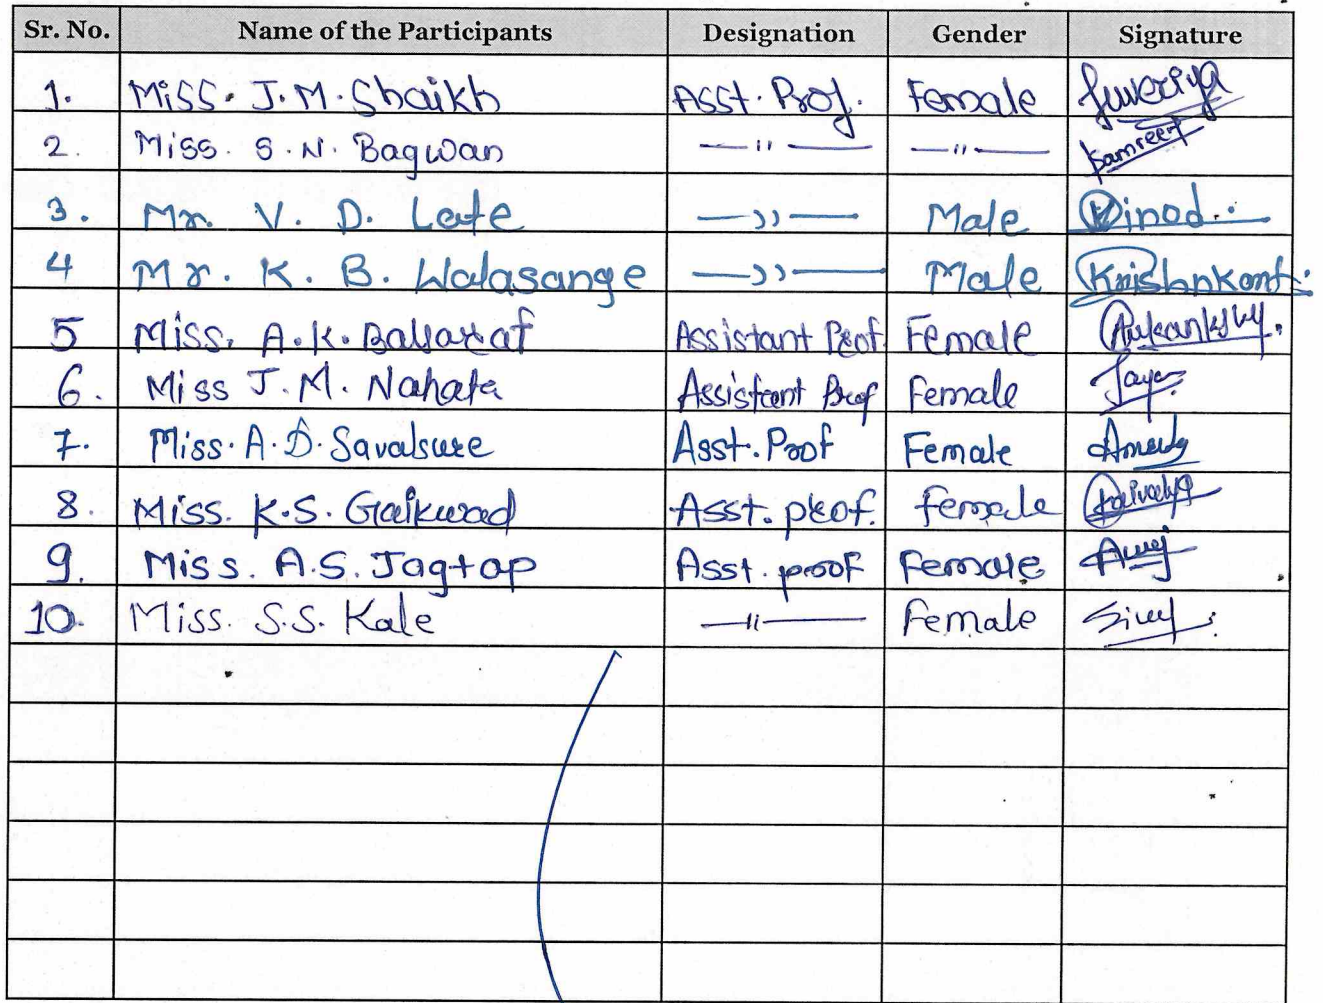 Sr. No. Name of the Participants Designation Gender Signature
1. Miss. J.M. Shaikh Asst. Prof. Female Juveriya
2. Miss. S.N. Bagwan —"— —"— Samreen
3. Mr. V. D. Late —))— Male Vinod.
4 Mr. K. B. Walasange —))— Male Krishnkant.
5 Miss. A.K. Assistant Prof. Female
6. Miss J.M. Nahata Assistant Prof Female Jaya
7. Miss. A.D. Savalsure Asst. Prof Female
8. Miss. K.S. Gaikwad Asst. prof. female Kaivalya
9. Miss. A.S. Jagtap Asst. proof Female
10. Miss. S.S. Kale —"— Female